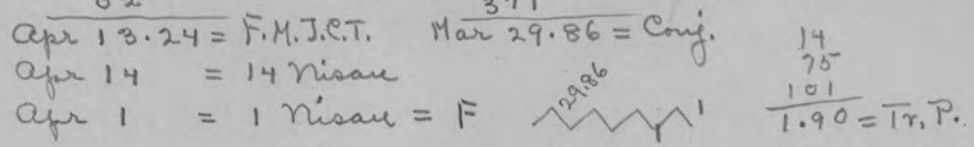 Apr 13.24 = F.M.J.C.T. Mar 29.86 = Conj.
Apr 14 = 14 Nisan
Apr 1 = 1 Nisan = F 29.86 1
14
75
101
1.90 = Tr. P.